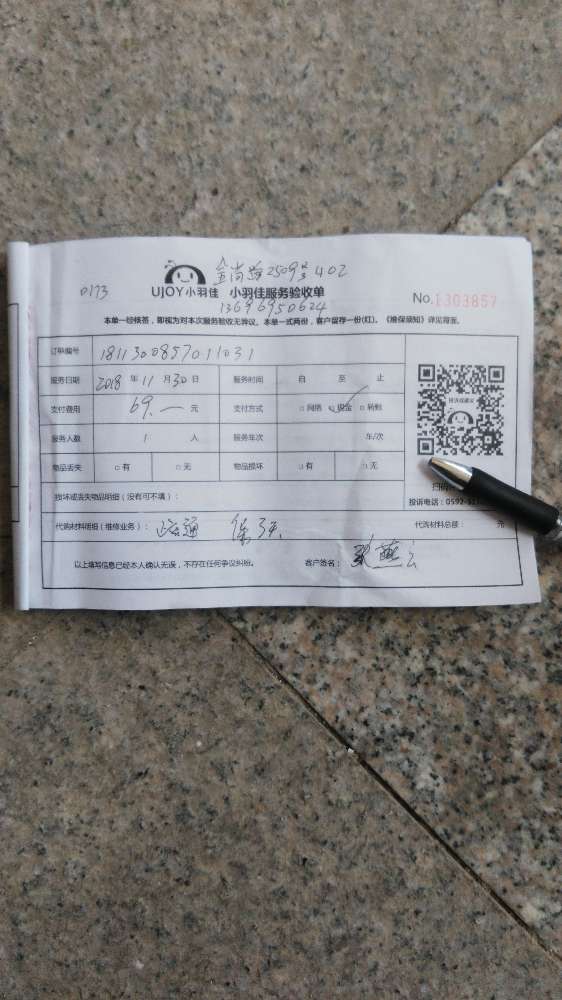 0173
UJOY小羽佳 小羽佳服务验收单
13696950624
No.1303857
本单一经签签，即视为对本次服务验收无异议。本单一式两份，客户留存一份(红)。《维保须知》详见背面。
订单编号 181130085701031
服务日期 2018 年 11 月 30 日 服务时间 自 至 止
支付费用 69.一 元 支付方式 □网络 ☑现金 □转账
服务人数 1 人 服务车次 车/次
物品丢失 □有 □无 物品损坏 □有 □无
投诉或建议
扫码
投诉电话：0592-5
损坏或丢失物品明细（没有可不填）：
代购材料明细（维修业务）： 通 保 天 代购材料总额： 元
以上填写信息已经本人确认无误，不存在任何争议纠纷。 客户签名：